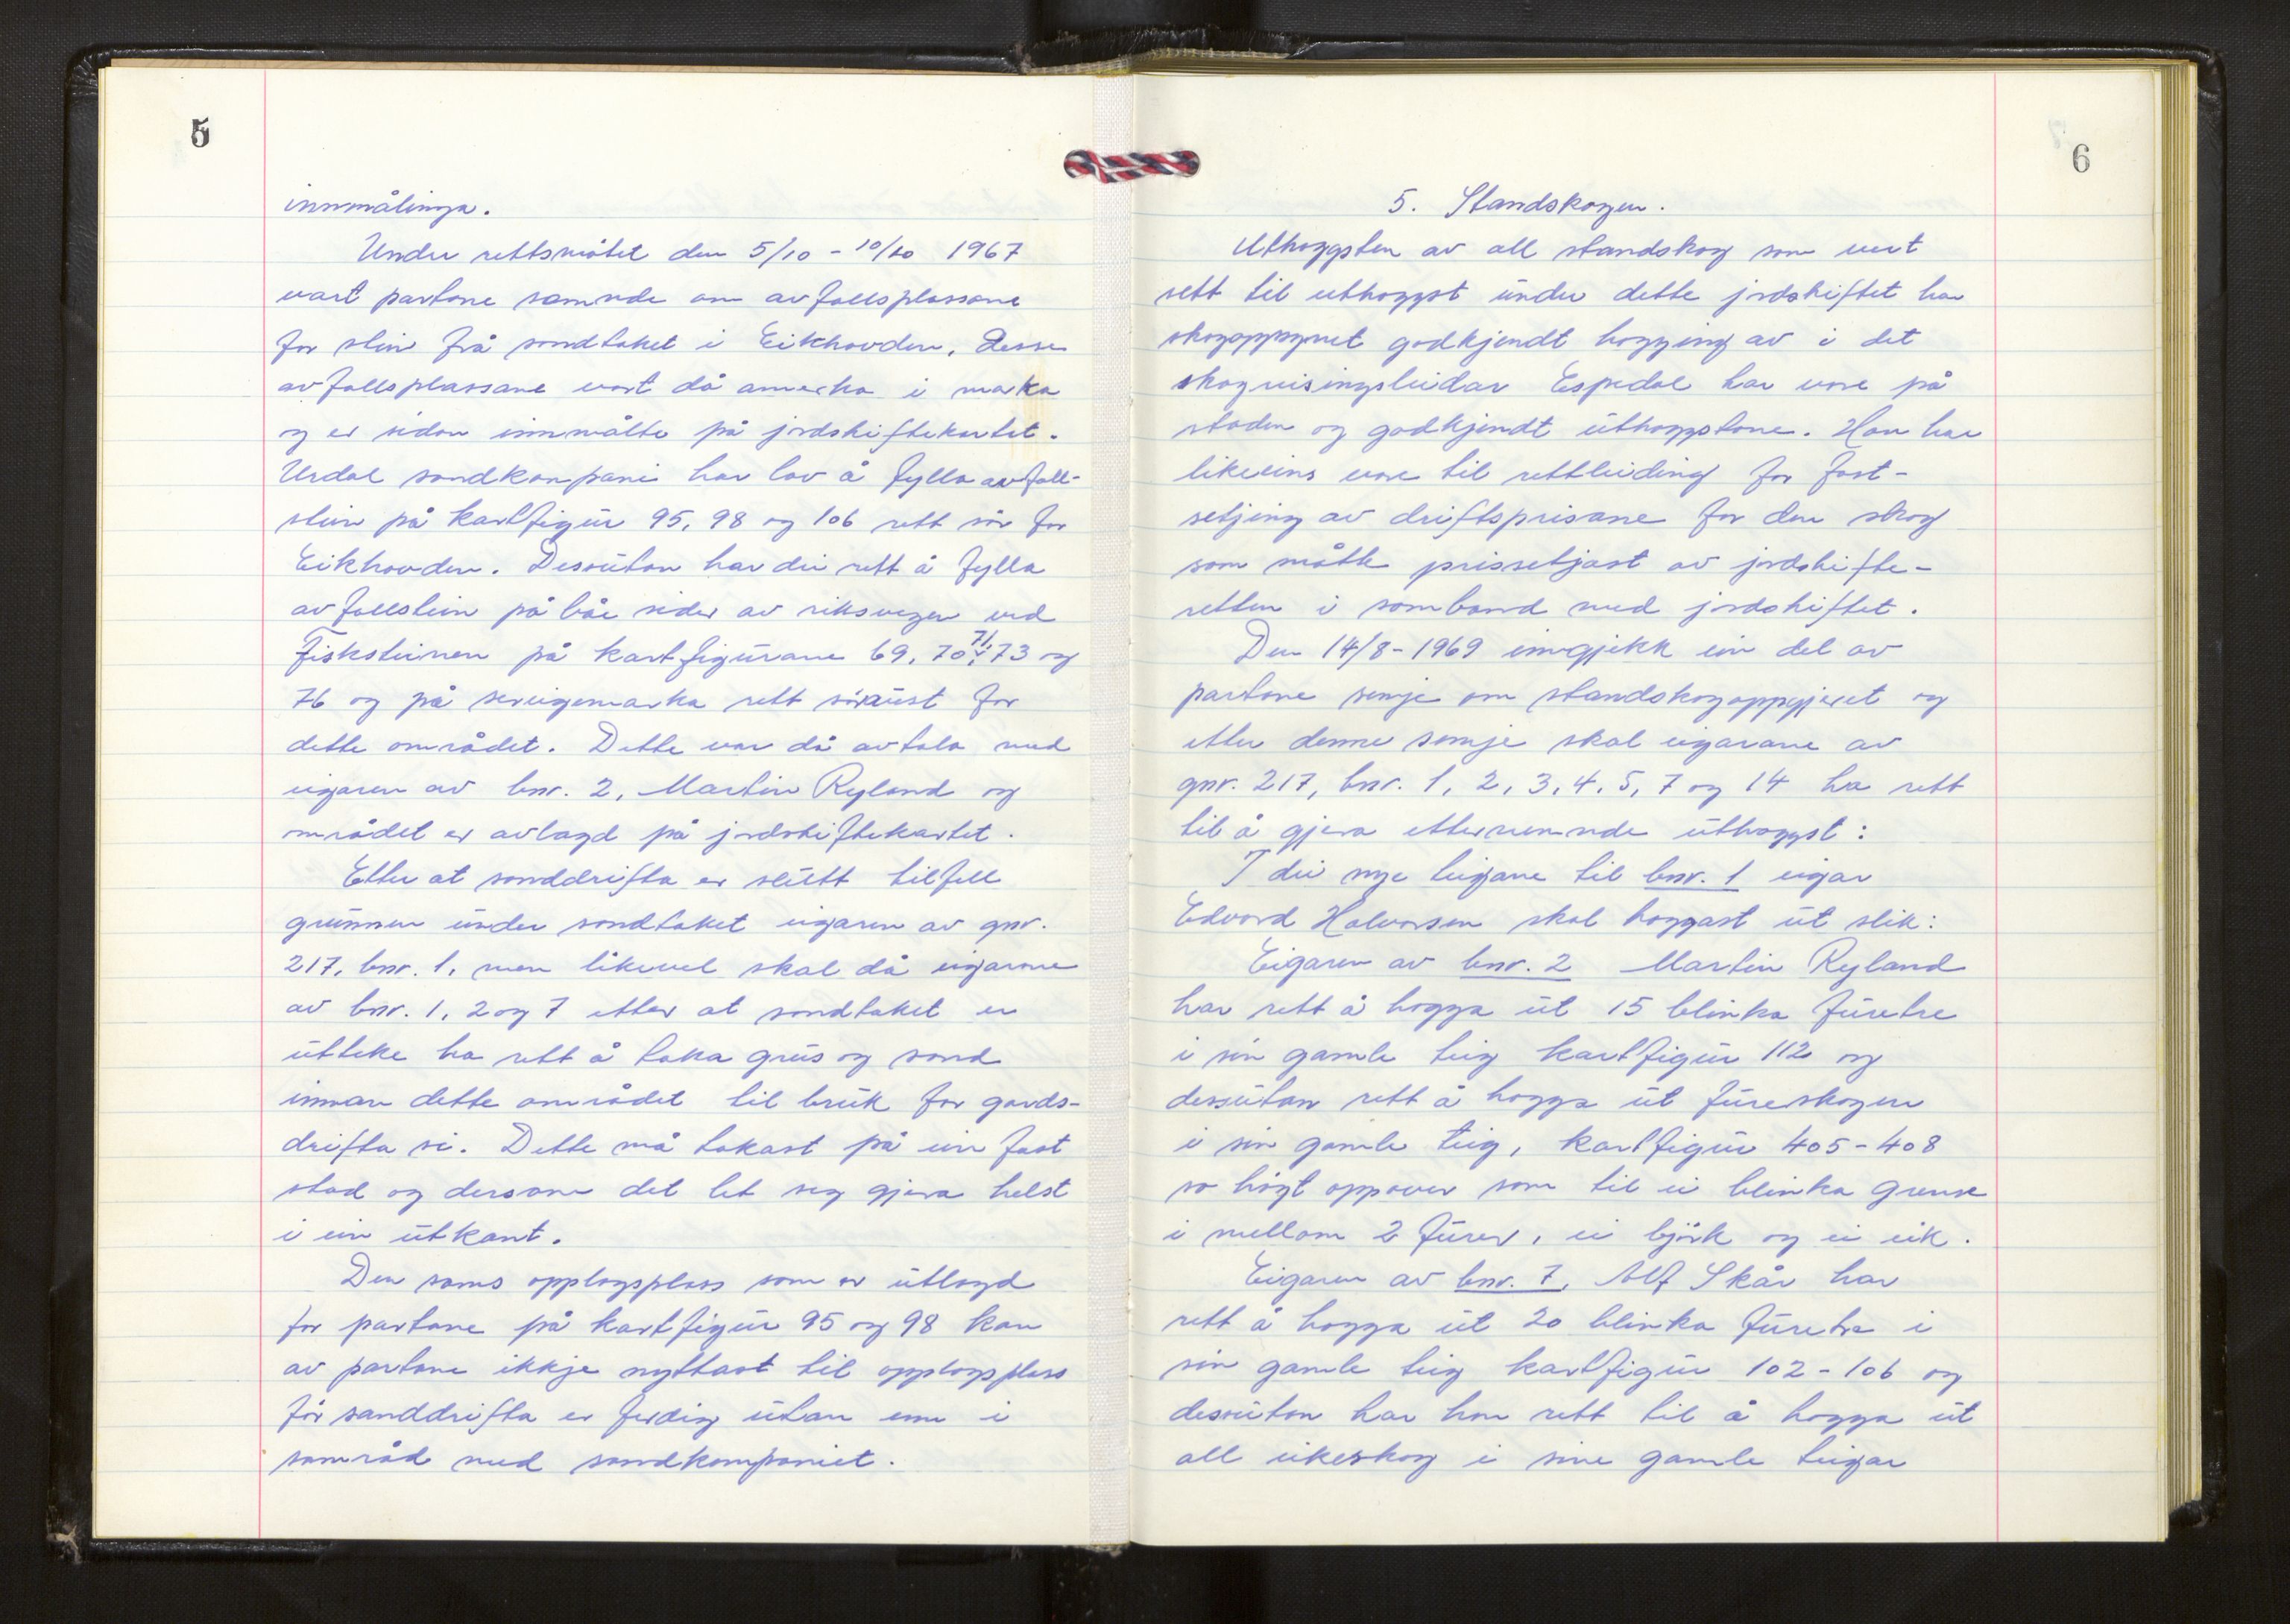 5
innmålinga.
Under rettsmøtet den 5/10 - 10/10 1967
vart partane samnde om avfallsplassane
for stein frå sandtaket i Eikhovden. Desse
avfallsplassane vart då anmerka i marka
og er sidan innmålte på jordskiftekartet.
Urdal sandkompani har lov å fylla avfall-
stein på kartfigur 95, 98 og 106 rett sør for
Eikhovden. Dessutan har dei rett å fylla
avfallstein på båe sider av riksvegen ved
Fisksteinen på kartfigurane 69, 70, 71, 73 og
76 og på sereigemarka rett søraust for
dette området. Dette var då avtala med
eigaren av bnr. 2, Martin Ryland og
området er avlagd på jordskiftekartet.
Etter at sanddrifta er slutt tilfell
grunnen under sandtaket eigaren av gnr.
217, bnr. 1, men likevel skal då eigarane
av bnr. 1, 2 og 7 etter at sandtaket er
utteke ha rett å taka grus og sand
innan dette området til bruk for gards-
drifta si. Dette må takast på ein fast
stad og dersom det let seg gjera helst
i ein utkant.
Den sams opplagsplass som er utlagd
for partane på kartfigur 95 og 98 kan
av partane ikkje nyttast til opplagsplass
før sanddrifta er ferdig utan enn i
samråd med sandkompaniet.
6
5. Standskogen.
Uthoggsten av all standskog som vert
sett til uthoggst under dette jordskiftet har
skogoppsynet godkjendt hogging av i det
skogreisingsleidar Espedal har vore på
staden og godkjendt uthoggstane. Han har
likeeins vore til rettleiding for fast-
setjing av driftsprisane for den skog
som måtte prissetjast av jordskifte-
retten i samband med jordskiftet.
Den 14/8 - 1969 inngjekk ein del av
partane semje om standskogoppgjeret og
etter denne semje skal eigarane av
gnr. 217, bnr. 1, 2, 3, 4, 5, 7 og 14 ha rett
til å gjera etternemnde uthoggst:
I dei nye teigane til bnr. 1 eigar
Edvard Halvorsen skal hoggast ut slik:
Eigaren av bnr. 2 Martin Ryland
har rett å hogga ut 15 blinka furetre
i sin gamle teig kartfigur 112 og
dessutan rett å hogga ut fureskogen
i sin gamle teig, kartfigur 405-408
so høgt oppover som til ei blinka grense
i mellom 2 furer, ei bjørk og ei eik.
Eigaren av bnr. 7, Alf Skår har
rett å hogga ut 20 blinka furetre i
sin gamle teig kartfigur 102-106 og
dessutan har han rett til å hogga ut
all eikeskog i sine gamle teigar